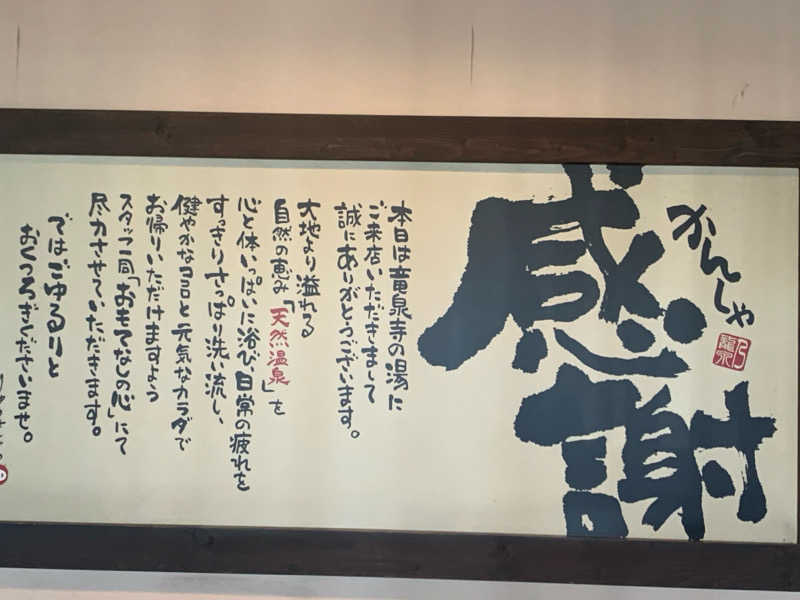 感謝
かんしゃ
本日は竜泉寺の湯に
ご来店いただきまして
誠にありがとうございます。
大地より溢れる
自然の恵み「天然温泉」を
心と体いっぱいに浴び日常の疲れを
すっきりさっぱり洗い流し、
健やかなココロと元気なカラダで
お帰りいただけますよう
スタッフ一同「おもてなしの心」にて
尽力させていただきます。
ではごゆるりと
おくつろぎくださいませ。